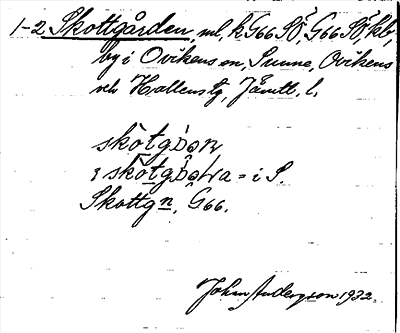 1-2 Skottgården, ml, k G66 SÖ, G66 SÖ kbr,
by i Ovikens sn, Sunne, Ovikens
och Hallens tg, Jämtl. l.
skòtgɔ̀ən
i skòtgɔ̂əɩ̵a = i S.
Skottgn, G66.
Johan Anderzson 1932.